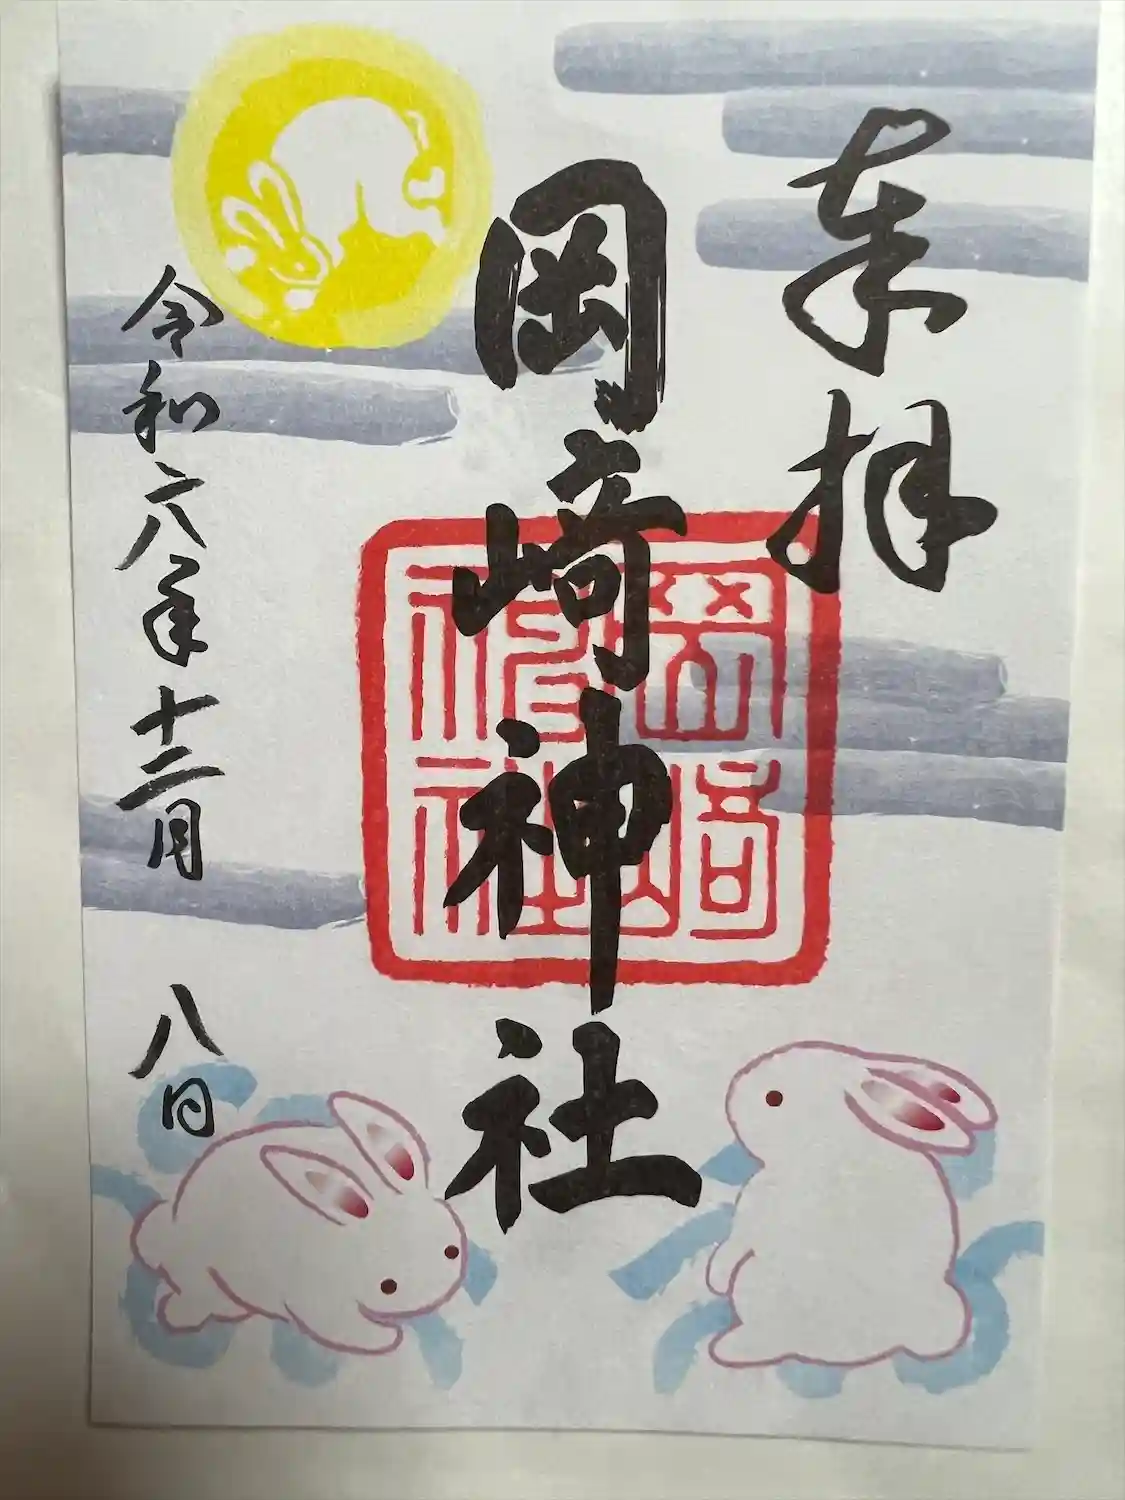 奉拝
岡﨑神社
岡崎神社
令和六年十二月八日